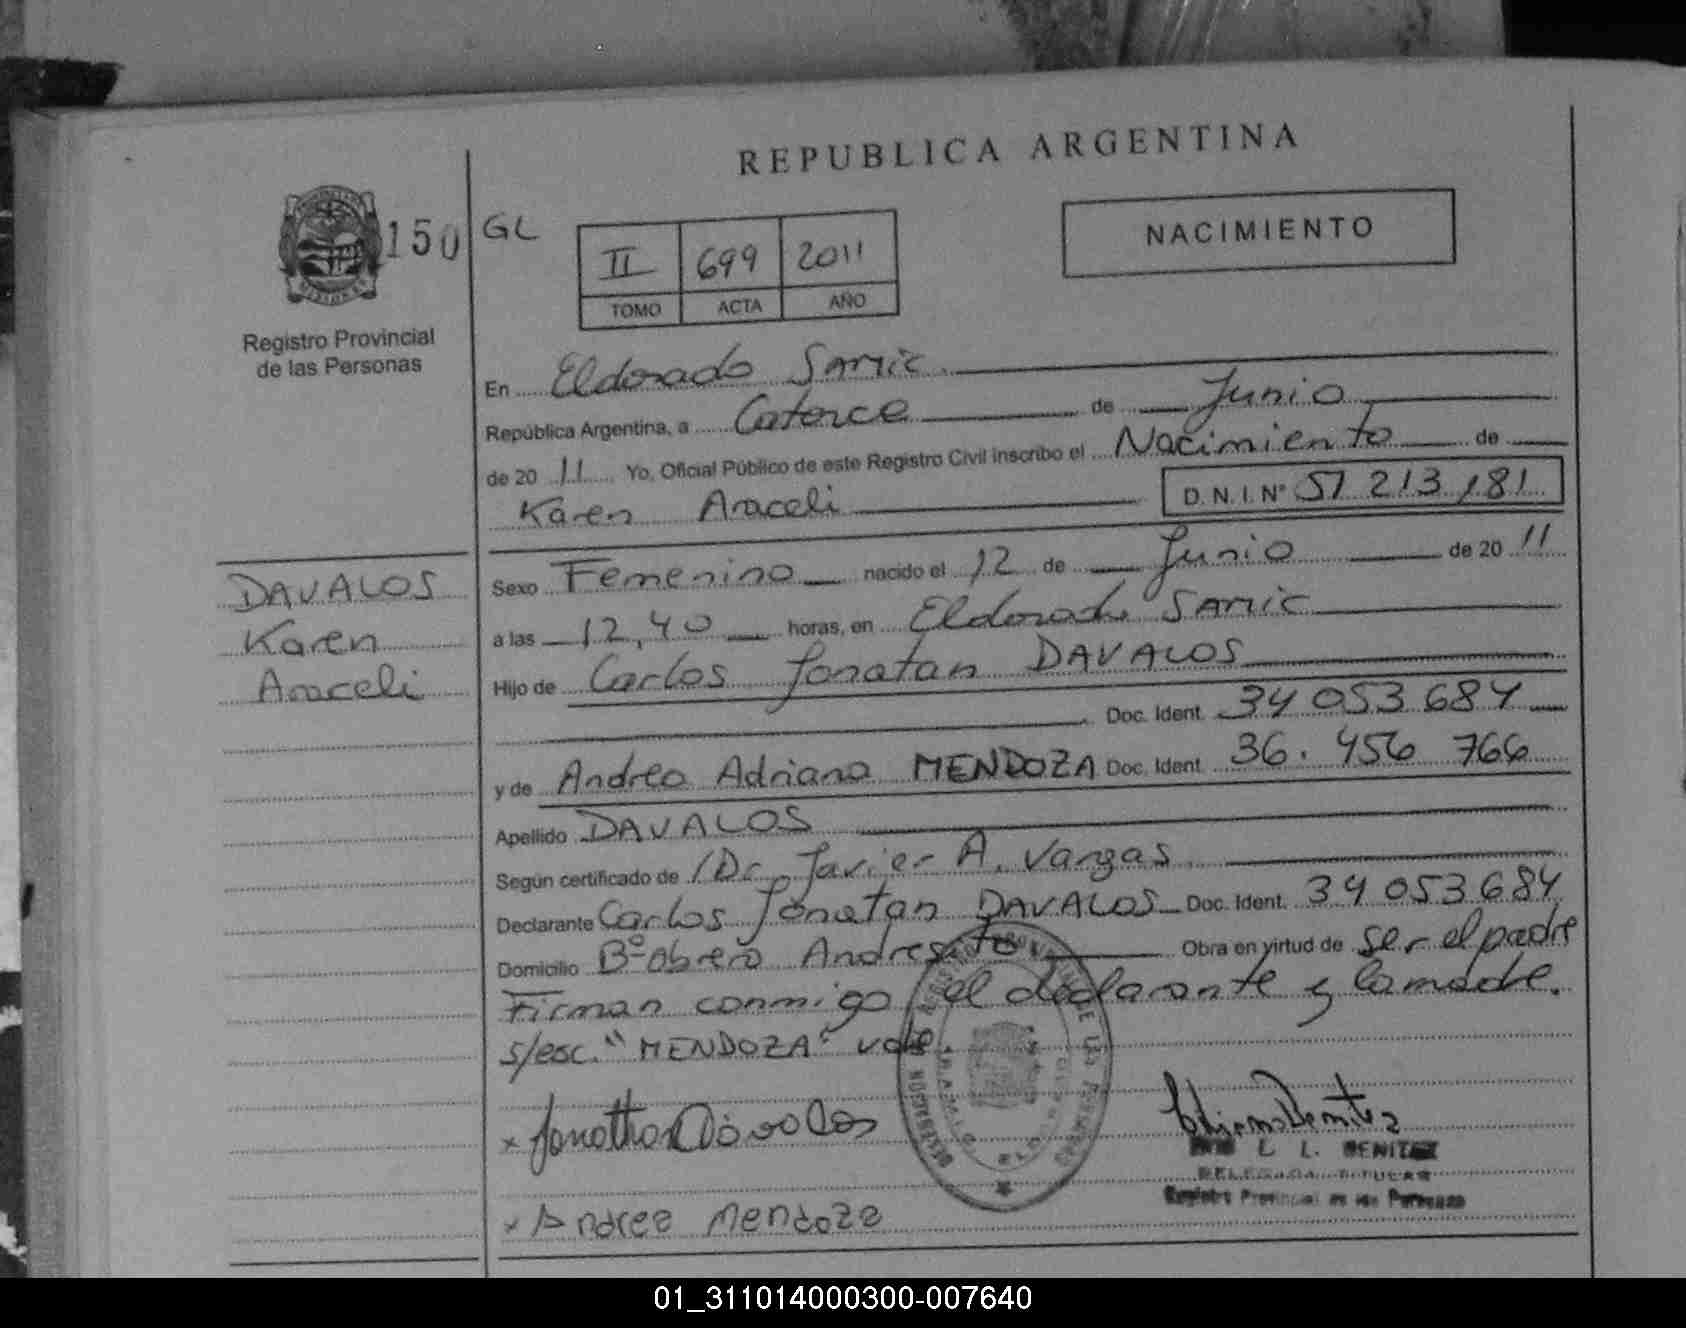 REPUBLICA ARGENTINA
150
GL
NACIMIENTO
II 699 2011
TOMO ACTA AÑO
Registro Provincial
de las Personas
En Eldorado SAMIC
República Argentina, a Catorce de Junio
de 20 11 Yo, Oficial Público de este Registro Civil inscribo el Nacimiento de
Karen Araceli D.N.I. Nº 51 213 181
DAVALOS
Karen
Araceli
Sexo Femenino nacido el 12 de Junio de 20 11
a las 12,40 horas, en Eldorado SAMIC
Hijo de Carlos Jonatan DAVALOS
Doc. Ident. 34 053 684
y de Andrea Adriana MENDOZA Doc. Ident. 36.456 766
Apellido DAVALOS
Según certificado de /Dr Javier A. Vargas
Declarante Carlos Jonatan DAVALOS Doc. Ident. 34 053 684
Domicilio Bº Obrero Andresito Obra en virtud de ser el padre
Firman conmigo el declarante y la madre.
s/esc. "MENDOZA" vale
x Jonathan Dávalos
L. BENITEZ
Registro Provincial de las Personas
x Andrea Mendoza
01_311014000300-007640